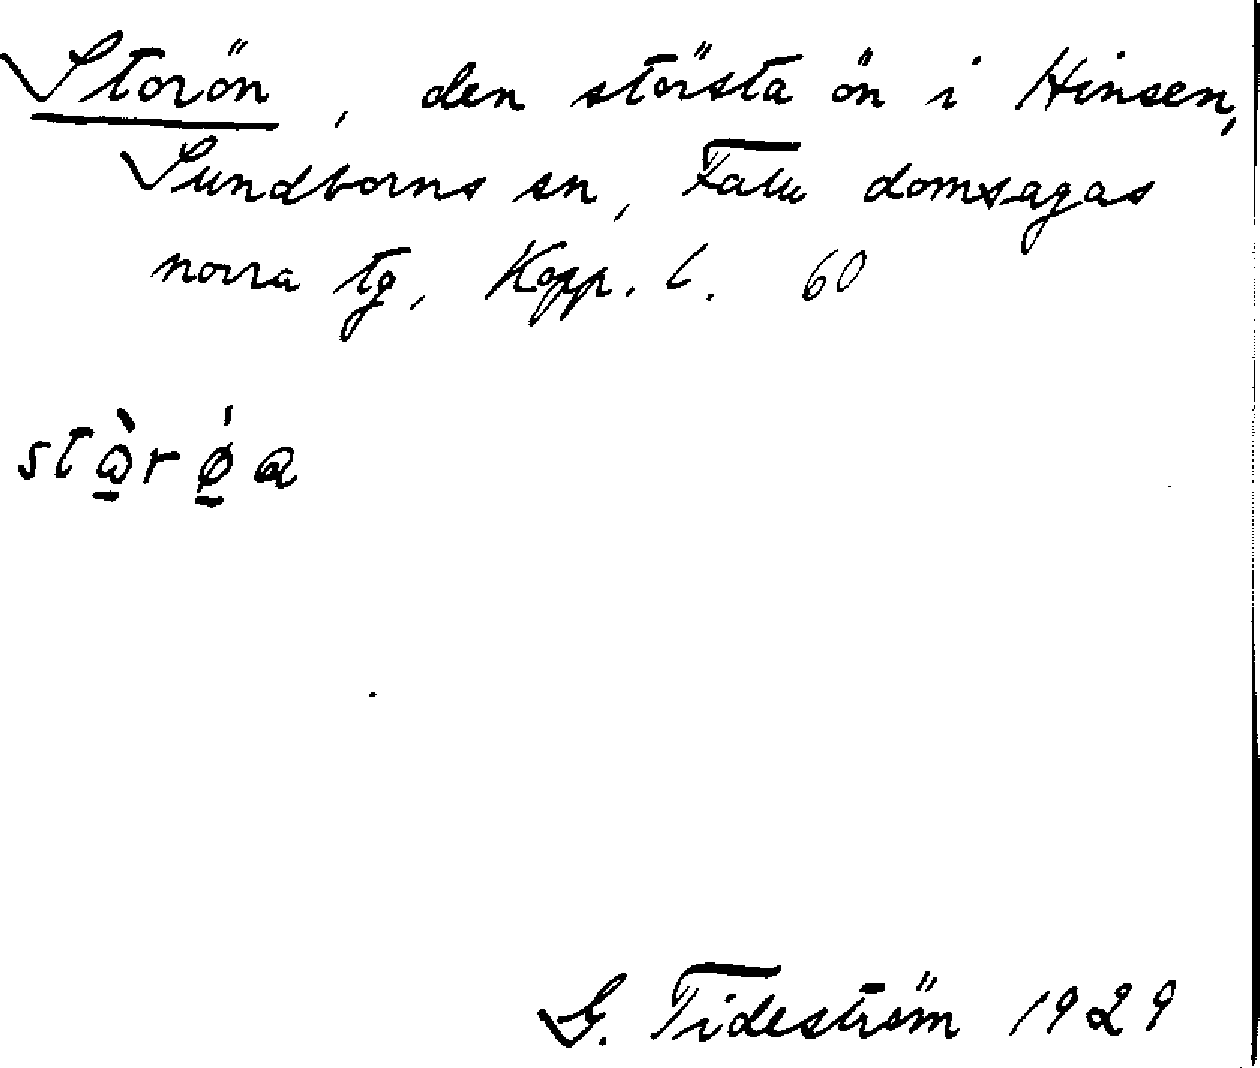 Storön, den största ön i Hinsen,
Sundborns sn, Falu domsagas
norra tg, Kopp. l. 60
G. Tideström 1929